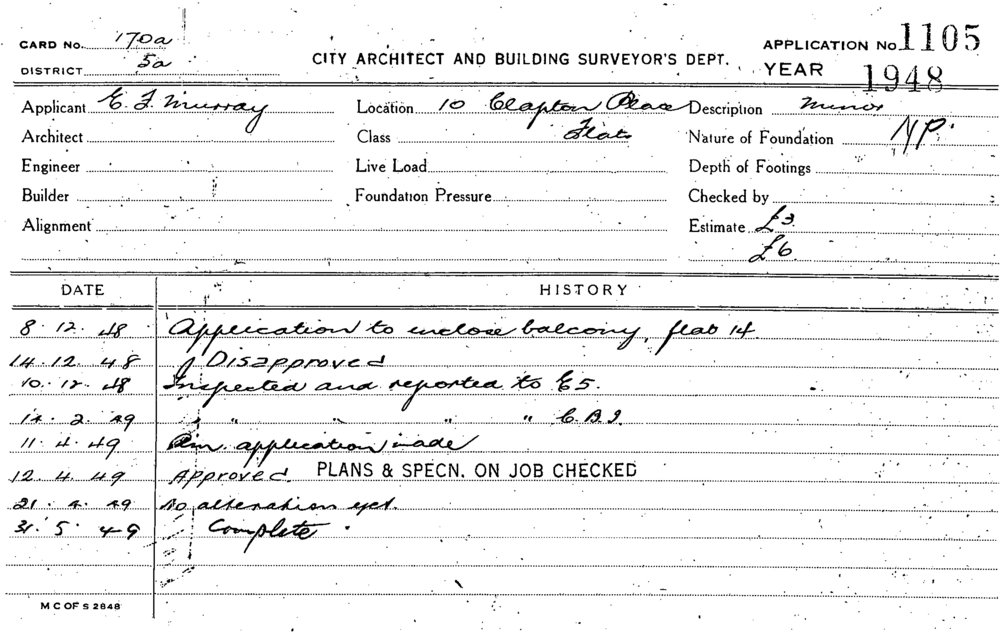 CARD No. 170a
DISTRICT 5a
CITY ARCHITECT AND BUILDING SURVEYOR'S DEPT.
APPLICATION No 1105
YEAR 1948
Applicant E. J. Murray
Location 10 Clapton Place
Description Minor
Architect
Class Flats
Nature of Foundation NP.
Engineer
Live Load
Depth of Footings
Builder
Foundation Pressure
Checked by
Alignment
Estimate £3
£6
DATE HISTORY
8. 12. 48 Application to enclose balcony, flat 14.
14. 12. 48 Disapproved
10. 12. 48 Inspected and reported to E5.
14. 2. 49 " " " " C.B.I.
11. 4. 49 application made
12. 4. 49 Approved. PLANS & SPECN. ON JOB CHECKED
21. 4. 49 No alteration yet.
31. 5. 49 Complete.
M C OF S 2648